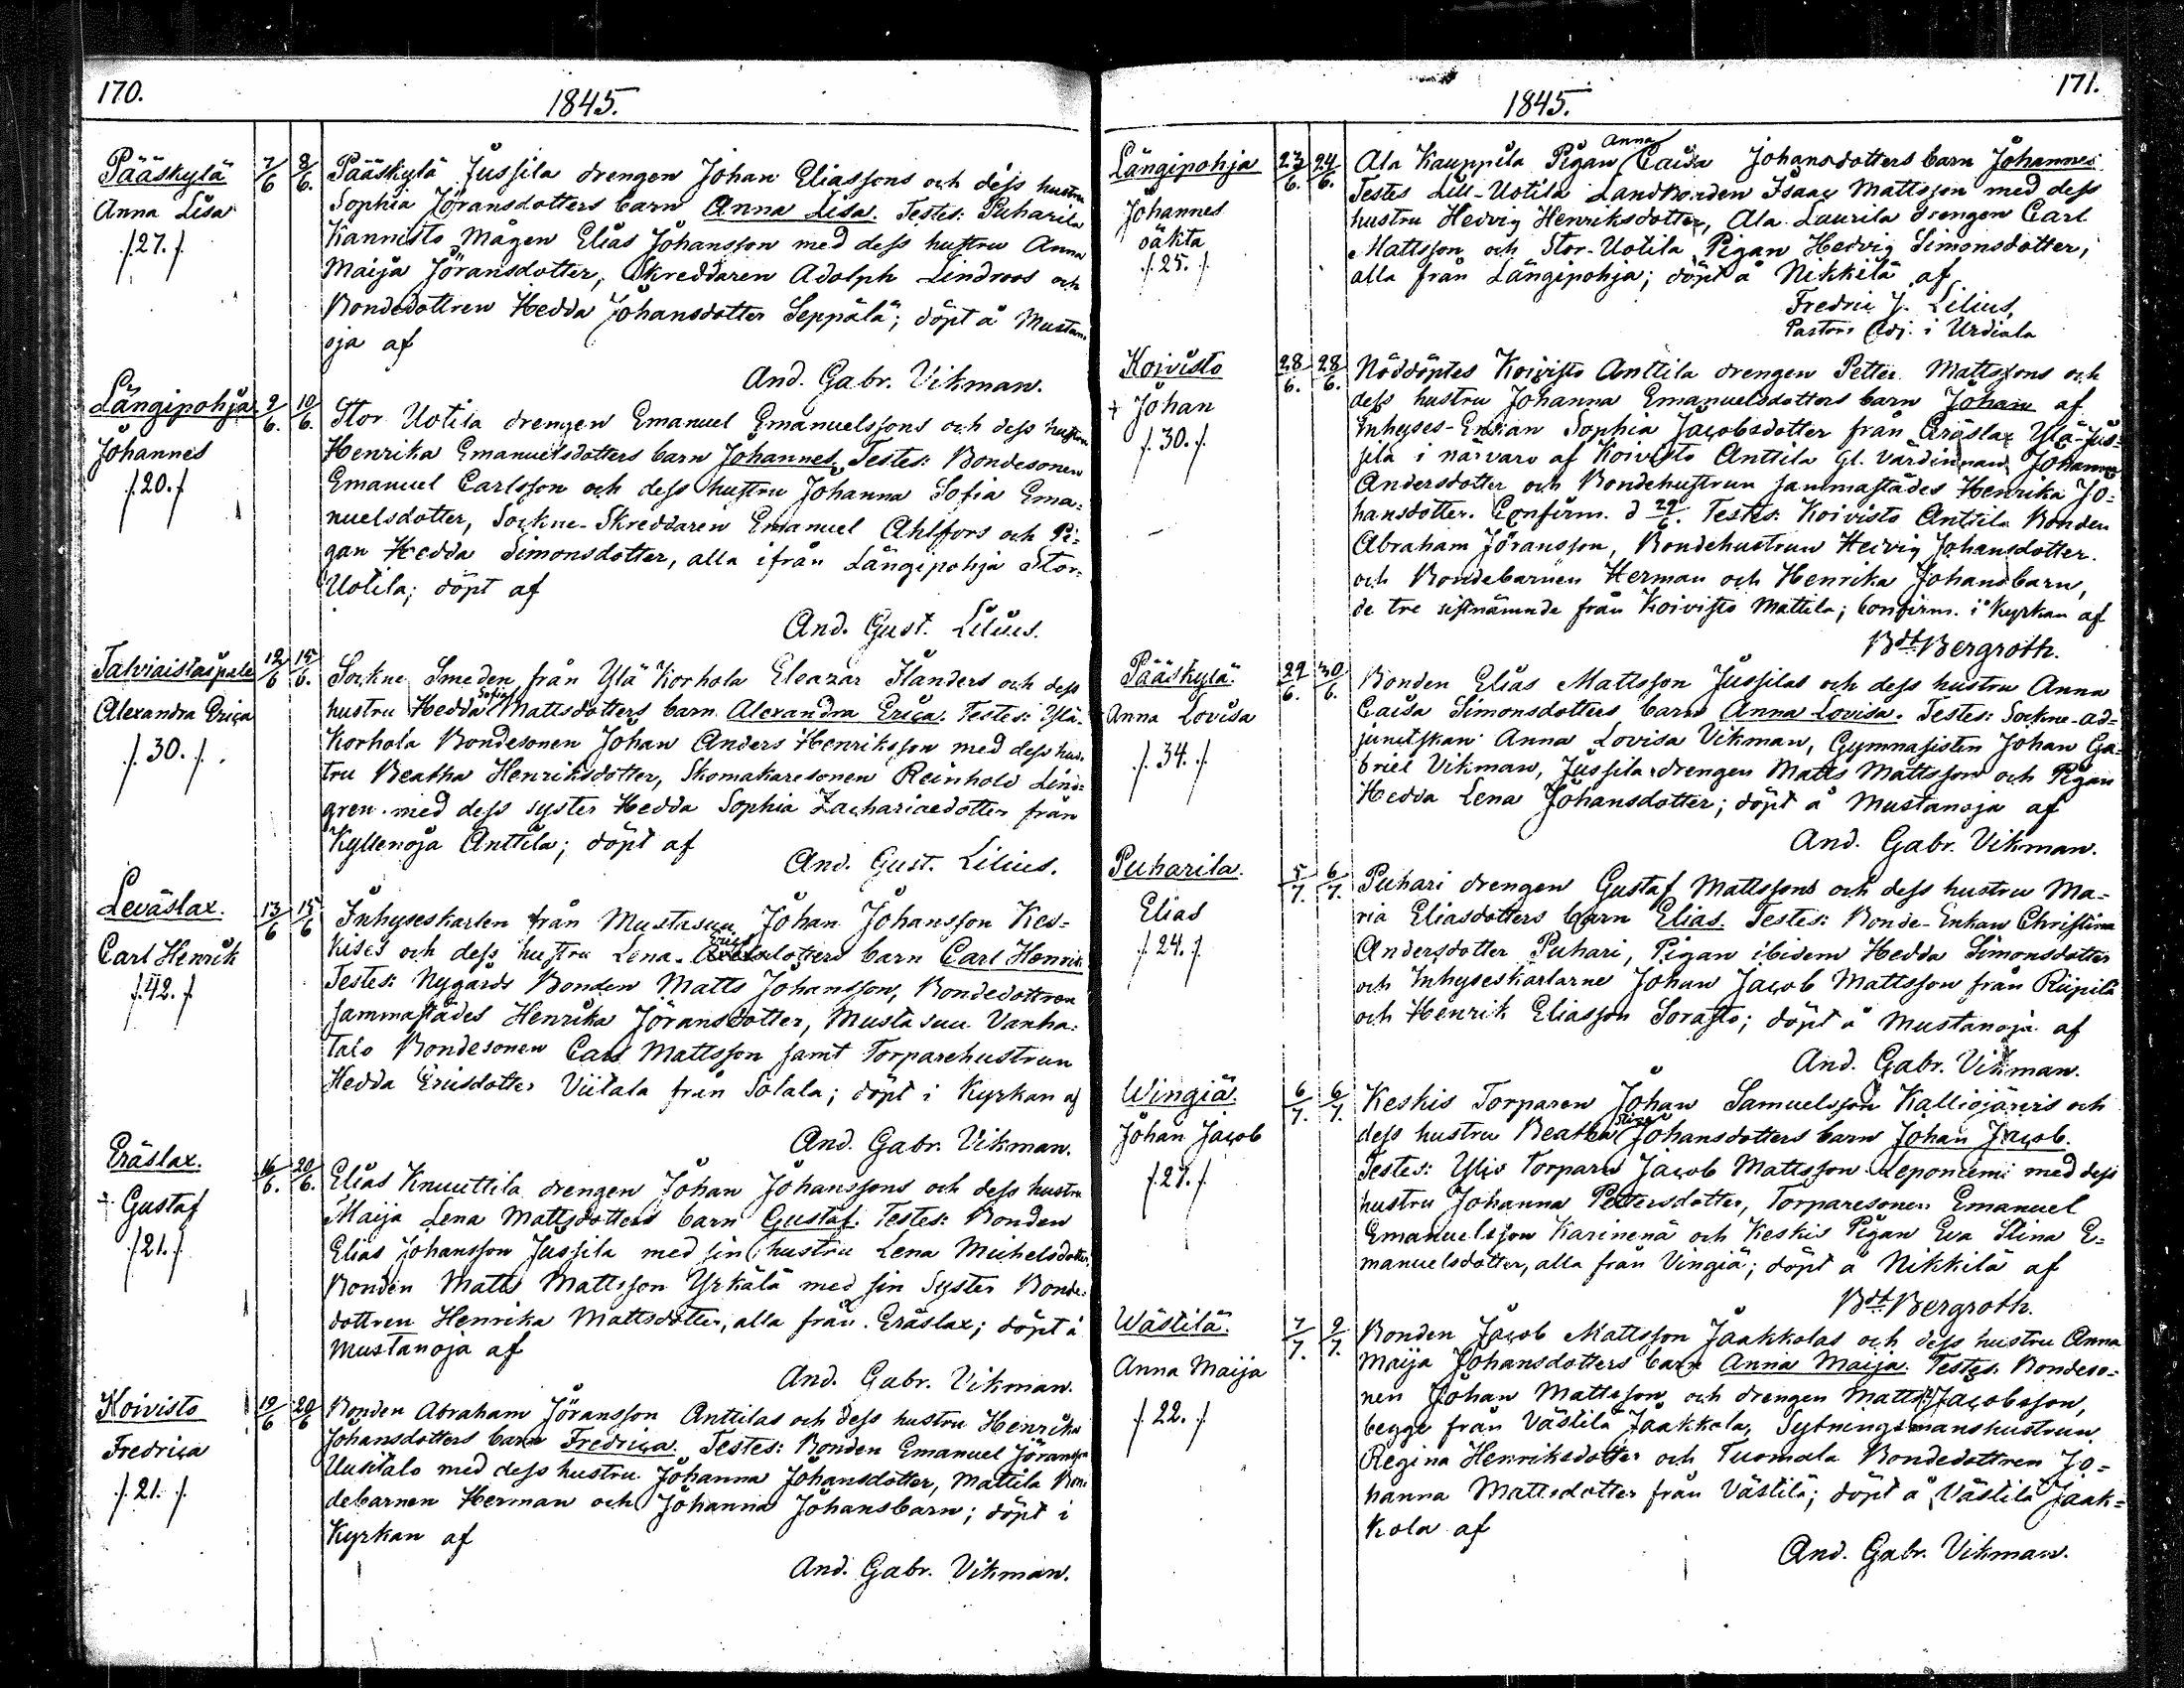 170.
1845.
Pääskylä
Anna Lisa
/.27./.
7/6 8/6.
Pääskylä Jussila drengen Johan Eliassons och dess hustru
Sophia Jöransdotters barn Anna Lisa. Testes: Puharila
Kannisto Mågen Elias Johansson med dess hustru Anna
Maija Jöransdotter, Skreddaren Adolph Lindroos och
Bondedottren Hedda Johansdotter Seppälä; döpt å Mustan-
oja af
And. Gabr. Vikman.
Längipohja
Johannes
/.20./
9/6. 10/6.
Stor Uotila drengen Emanuel Emanuelssons och dess hustru
Henrika Emanuelsdotters barn Johannes. Testes: Bondesonen
Emanuel Carlsson och dess hustru Johanna Sofia Ema=
nuelsdotter, Sockne-Skreddaren Emanuel Ahlfors och Pi=
gan Hedda Simonsdotter, alla ifrån Längipohja Stor-
Uotila; döpt af
And. Gust. Lilius.
Talviaistaipale
Alexandra Erica
/.30./.
12/6 15/6.
Sockne Smeden från Ylä Korhola Eleazar Flanders och dess
hustru Hedda Sofia Mattsdotters barn Alexandra Erica. Testes: Ylä-
Korhola Bondesonen Johan Anders Henriksson med dess hus-
tru Beatha Henriksdotter, Skomakaresonen Reinhold Lind=
gren med dess syster Hedda Sophia Zachariaedotter från
Kyllenoja Anttila; döpt af
And. Gust. Lilius.
Leväslax.
Carl Henrik
/.42./
13/6 15/6
Inhyseskarlen från Mustasuu Johan Johansson Kes=
kises och dess hustru Lena Ericsdotters barn Carl Henrik
Testes: Nygårds Bonden Matts Johansson, Bondedottren
sammastädes Henrika Jöransdotter, Mustasuu Vanha-
talo Bondesonen Carl Mattsson samt Torparehustrun
Hedda Ericsdotter Viitala från Solala; döpt i Kyrkan af
And. Gabr. Vikman.
Eräslax.
+ Gustaf
/.21./
16/6. 20/6.
Elias Knuuttila drengen Johan Johanssons och dess hustru
Maija Lena Mattsdotters barn Gustaf. Testes: Bonden
Elias Johansson Jussila med sin hustru Lena Michelsdotter,
Bonden Matts Mattsson Yrkälä med sin Syster Bonde-
dottren Henrika Mattsdotter, alla från Eräslax; döpt å
Mustanoja af
And. Gabr. Vikman.
Koivisto
Fredrica
/.21./.
19/6 20/6
Bonden Abraham Jöransson Anttilas och dess hustru Henrika
Johansdotters barn Fredrica. Testes: Bonden Emanuel Jöransson
Uusitalo med dess hustru Johanna Johansdotter, Mattila Bon-
debarnen Herman och Johanna Johansbarn; döpt i
Kyrkan af
And. Gabr. Vikman.
171.
1845.
Längipohja
Johannes
oäkta
/.25./.
23/6. 24/6.
Ala Kauppila Pigan Anna Caisa Johansdotters barn Johannes
Testes Lill-Uotila Landbonden Isaac Mattsson med dess
hustru Hedvig Henriksdotter, Ala Laurila drengen Carl
Mattsson och Stor-Uotila Pigan Hedvig Simonsdotter,
alla från Längipohja; döpt å Nikkilä af
Fredric J. Lilius,
Pastors Adj. i Urdiala
Koivisto
+ Johan
/.30./.
28/6. 28/6.
Nöddöptes Koivisto Anttila drengen Petter Mattssons och
dess hustru Johanna Emanuelsdotters barn Johan af
Inhyses-Enkan Sophia Jacobsdotter från Eräslax Ylä-Jus=
sila i närvaro af Koivisto Anttila Gl. Värdinnan Johanna
Andersdotter och Bondehustrun sammastädes Henrika Jo=
hansdotter. Confirm. d 29/6. Testes: Koivisto Anttila Bonden
Abraham Jöransson, Bondehustrun Hedvig Johansdotter
och Bondebarnen Herman och Henrika Johansbarn,
de tre sistnämnde från Koivisto Mattila; confirm. i Kyrkan af
Bdt Bergroth.
Pääskylä.
Anna Lovisa
/.34./
29/6. 30/6.
Bonden Elias Mattsson Jussilas och dess hustru Anna
Caisa Simonsdotters barn Anna Lovisa. Testes: Sockne-ad=
junctskan Anna Lovisa Vikman, Gymnasisten Johan Ga=
briel Vikman, Jussila drengen Matts Mattsson och Pigan
Hedda Lena Johansdotter; döpt å Mustanoja af
And. Gabr. Vikman.
Puharila.
Elias
/.24./.
5/7. 6/7.
Puhari drengen Gustaf Mattssons och dess hustru Ma=
ria Eliasdotters barn Elias. Testes: Bonde-Enkan Christina
Andersdotter Puhari, Pigan ibidem Hedda Simonsdotter
och Inhyseskarlarne Johan Jacob Mattsson från Riipilä
och Henrik Eliasson Sorasto; döpt å Mustanoja af
And. Gabr. Vikman.
Wingiä.
Johan Jacob
/.27./.
6/7. 6/7.
Keskis Torparen Johan Samuelsson Kalliojärvis och
dess hustru Beatha Stina Johansdotters barn Johan Jacob.
Testes: Ylis Torparn Jacob Mattsson Leponiemi med dess
hustru Johanna Pettersdotter, Torparesonen Emanuel
Emanuelsson Karinenä och Keskis Pigan Eva Stina E=
manuelsdotter, alla från Vingiä; döpt å Nikkilä af
Bdt Bergroth.
Wästilä.
Anna Maija
/.22./.
7/7. 9/7.
Bonden Jacob Mattsson Jaakkolas och dess hustru Anna
Maija Johansdotters barn Anna Maija. Testes: Bondeso=
nen Johan Mattsson och drengen Matts Jacobsson,
begge från Västilä Jaakkola, Sytningsmanshustrun
Regina Henriksdotter och Tuomala Bondedottren Jo=
hanna Mattsdotter från Västilä; döpt å Västilä Jaak=
kola af
And. Gabr. Vikman.